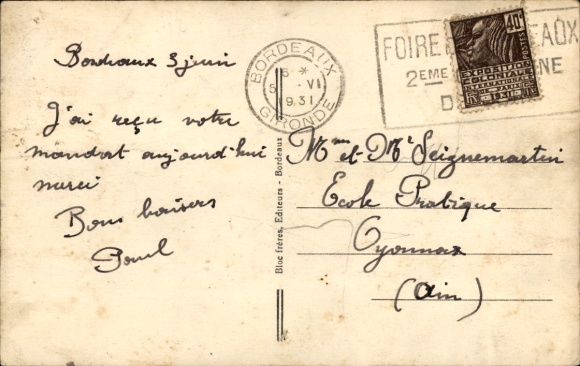 Bordeaux 3 juin
J'ai reçu votre
mandat aujourd'hui
merci
Bons baisers
Paul
BORDEAUX
6 *
5 -VI
1931
GIRONDE
FOIRE
EAUX
2EME
NE
D
40c
POSTES
EXPOSITION
COLONIALE
INTERNATIONALE
PARIS
1931
Bloc frères, Editeurs - Bordeaux
Mme et Mr Seignemartin
Ecole Pratique
Oyonnax
(Ain)